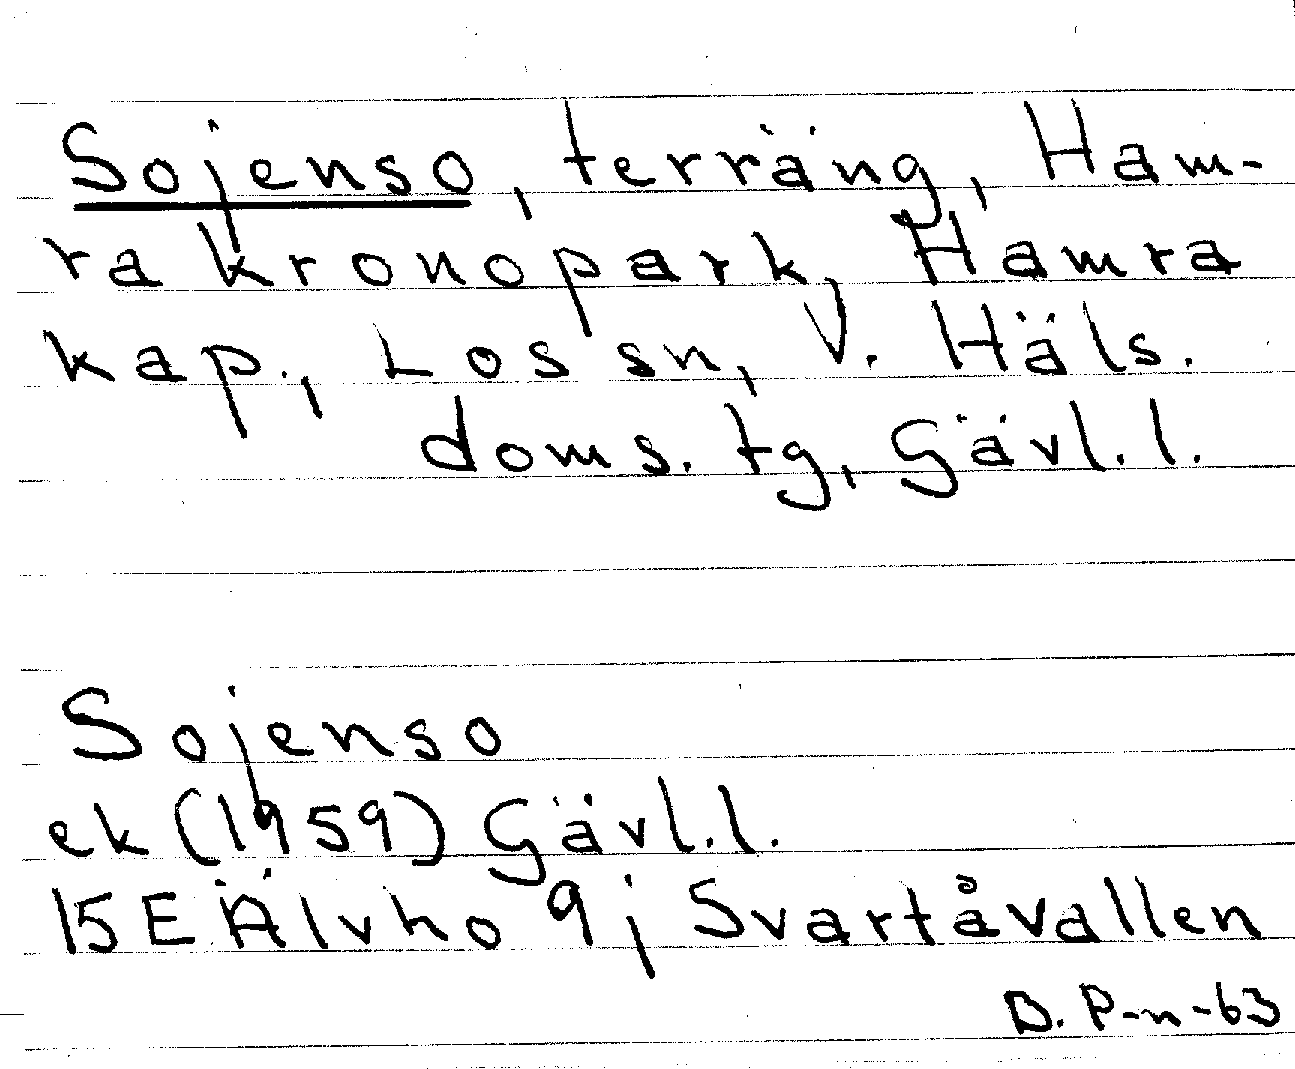 Sojenso, terräng, Ham-
ra kronopark, Hamra
kap., Los sn, V. Häls.
doms. tg, Gävl. l.
Sojenso
ek (1959) Gävl. l.
15E Älvho 9j Svartåvallen
D. P-n-63